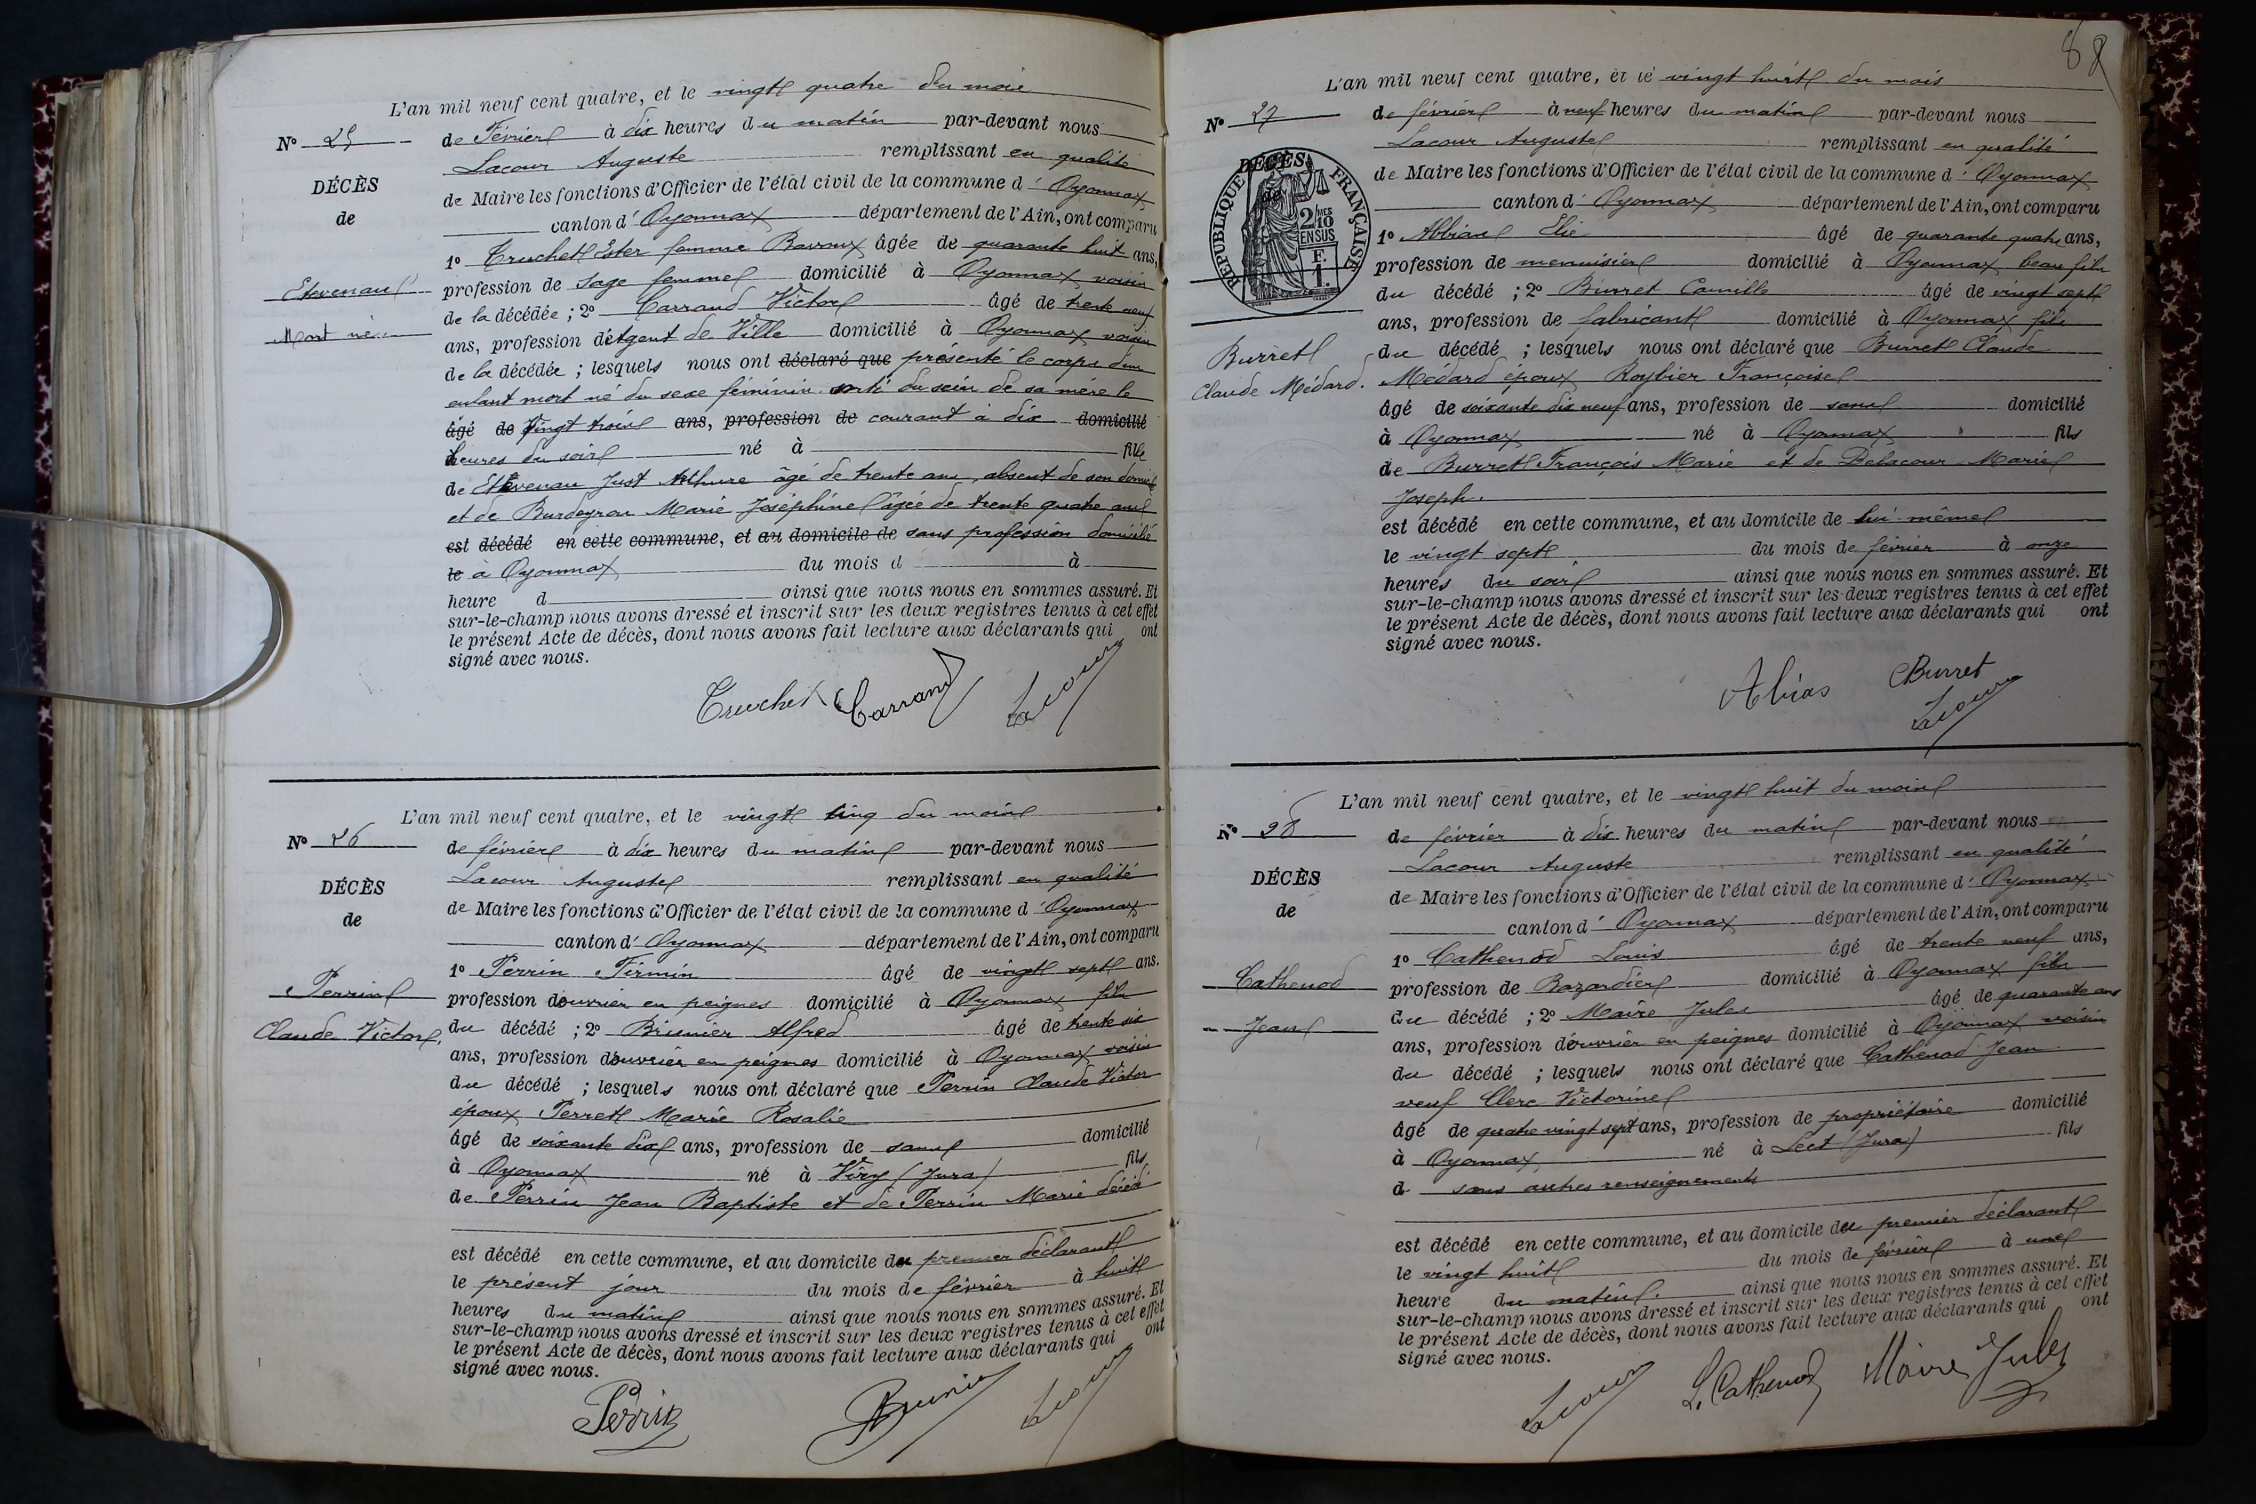 L'an mil neuf cent quatre, et le vingt quatre du mois
N° 25
de Février à dix heures du matin par-devant nous
Lacour Auguste remplissant en qualité
DÉCÈS
de Maire les fonctions d'Officier de l'état civil de la commune d' Oyonnax
de
canton d' Oyonnax département de l'Ain, ont comparu
1° Truchet Ester femme Bavoux âgée de quarante huit ans,
Etevenau
profession de sage femme domicilié à Oyonnax voisin
de la décédée ; 2° Carrand Victor âgé de trente neuf
Mort né
ans, profession d'Agent de Ville domicilié à Oyonnax voisin
de la décédée ; lesquels nous ont déclaré que présenté le corps d'un
enfant mort né du sexe féminin sorti du sein de sa mère le
âgé de Vingt trois ans, profession de courant à dix domicilié
heures du soir né à fille
de Etevenau Just Arthure âgé de trente ans, absent de son domicile
et de Burdeyron Marie Joséphine âgée de trente quatre ans
est décédé en cette commune, et au domicile de sans profession domiciliée
le à Oyonnax du mois d à
heure d ainsi que nous nous en sommes assuré. Et
sur-le-champ nous avons dressé et inscrit sur les deux registres tenus à cet effet
le présent Acte de décès, dont nous avons fait lecture aux déclarants qui ont
signé avec nous.
Truchet Carrand Lacour
L'an mil neuf cent quatre, et le vingt cinq du mois
N° 26
de février à dix heures du matin par-devant nous
Lacour Auguste remplissant en qualité
DÉCÈS
de Maire les fonctions d'Officier de l'état civil de la commune d' Oyonnax
de
canton d' Oyonnax département de l'Ain, ont comparu
1° Perrin Firmin âgé de vingt sept ans.
Perrin
profession d'ouvrier en peignes domicilié à Oyonnax fils
Claude Victor.
du décédé ; 2° Brunier Alfred âgé de trente six
ans, profession d'ouvrier en peignes domicilié à Oyonnax voisin
du décédé ; lesquels nous ont déclaré que Perrin Claude Victor
époux Perret Marie Rosalie
âgé de soixante dix ans, profession de sans domicilié
à Oyonnax né à Viry (Jura) fils
de Perrin Jean Baptiste et de Perrin Marie décéd
est décédé en cette commune, et au domicile du premier déclarant
le présent jour du mois de février à huit
heures du matin ainsi que nous nous en sommes assuré. Et
sur-le-champ nous avons dressé et inscrit sur les deux registres tenus à cet effet
le présent Acte de décès, dont nous avons fait lecture aux déclarants qui ont
signé avec nous.
Perrin Brunier Lacour
88
L'an mil neuf cent quatre, et le vingt huit du mois
N° 27
de février à neuf heures du matin par-devant nous
Lacour Auguste remplissant en qualité
DÉCÈS
RÉPUBLIQUE FRANÇAISE
2/10 MES
EN SUS
F.
1.
de Maire les fonctions d'Officier de l'état civil de la commune d' Oyonnax
de
canton d' Oyonnax département de l'Ain, ont comparu
1° Elie âgé de quarante quatre ans,
profession de menuisier domicilié à Oyonnax beau fils
du décédé ; 2° Burret Camille âgé de vingt sept
ans, profession de fabricant domicilié à Oyonnax fils
Burret
Claude Médard.
du décédé ; lesquels nous ont déclaré que Burret Claude
Médard époux Roybier Françoise
âgé de soixante dix neuf ans, profession de sans domicilié
à Oyonnax né à Oyonnax fils
de Burret François Marie et de Delacour Marie
Joseph.
est décédé en cette commune, et au domicile de lui même
le vingt sept du mois de février à onze
heures du soir ainsi que nous nous en sommes assuré. Et
sur-le-champ nous avons dressé et inscrit sur les deux registres tenus à cet effet
le présent Acte de décès, dont nous avons fait lecture aux déclarants qui ont
signé avec nous.
Abias CBurret
Lacour
L'an mil neuf cent quatre, et le vingt huit du mois
N° 28
de février à dix heures du matin par-devant nous
Lacour Auguste remplissant en qualité
DÉCÈS
de Maire les fonctions d'Officier de l'état civil de la commune d' Oyonnax
de
canton d' Oyonnax département de l'Ain, ont comparu
1° Cathenod Louis âgé de trente neuf ans,
Cathenod
profession de Bazardier domicilié à Oyonnax fils
Jean
du décédé ; 2° Maire Jules âgé de quarante ans
ans, profession d'ouvrier en peignes domicilié à Oyonnax voisin
du décédé ; lesquels nous ont déclaré que Cathenod Jean
veuf Clerc Victorine
âgé de quatre vingt sept ans, profession de propriétaire domicilié
à Oyonnax né à Lect (Jura) fils
d sans autres renseignements
est décédé en cette commune, et au domicile du premier déclarant
le vingt huit du mois de février à une
heure du matin. ainsi que nous nous en sommes assuré. Et
sur-le-champ nous avons dressé et inscrit sur les deux registres tenus à cet effet
le présent Acte de décès, dont nous avons fait lecture aux déclarants qui ont
signé avec nous.
Lacour L. Cathenod Maire Jules